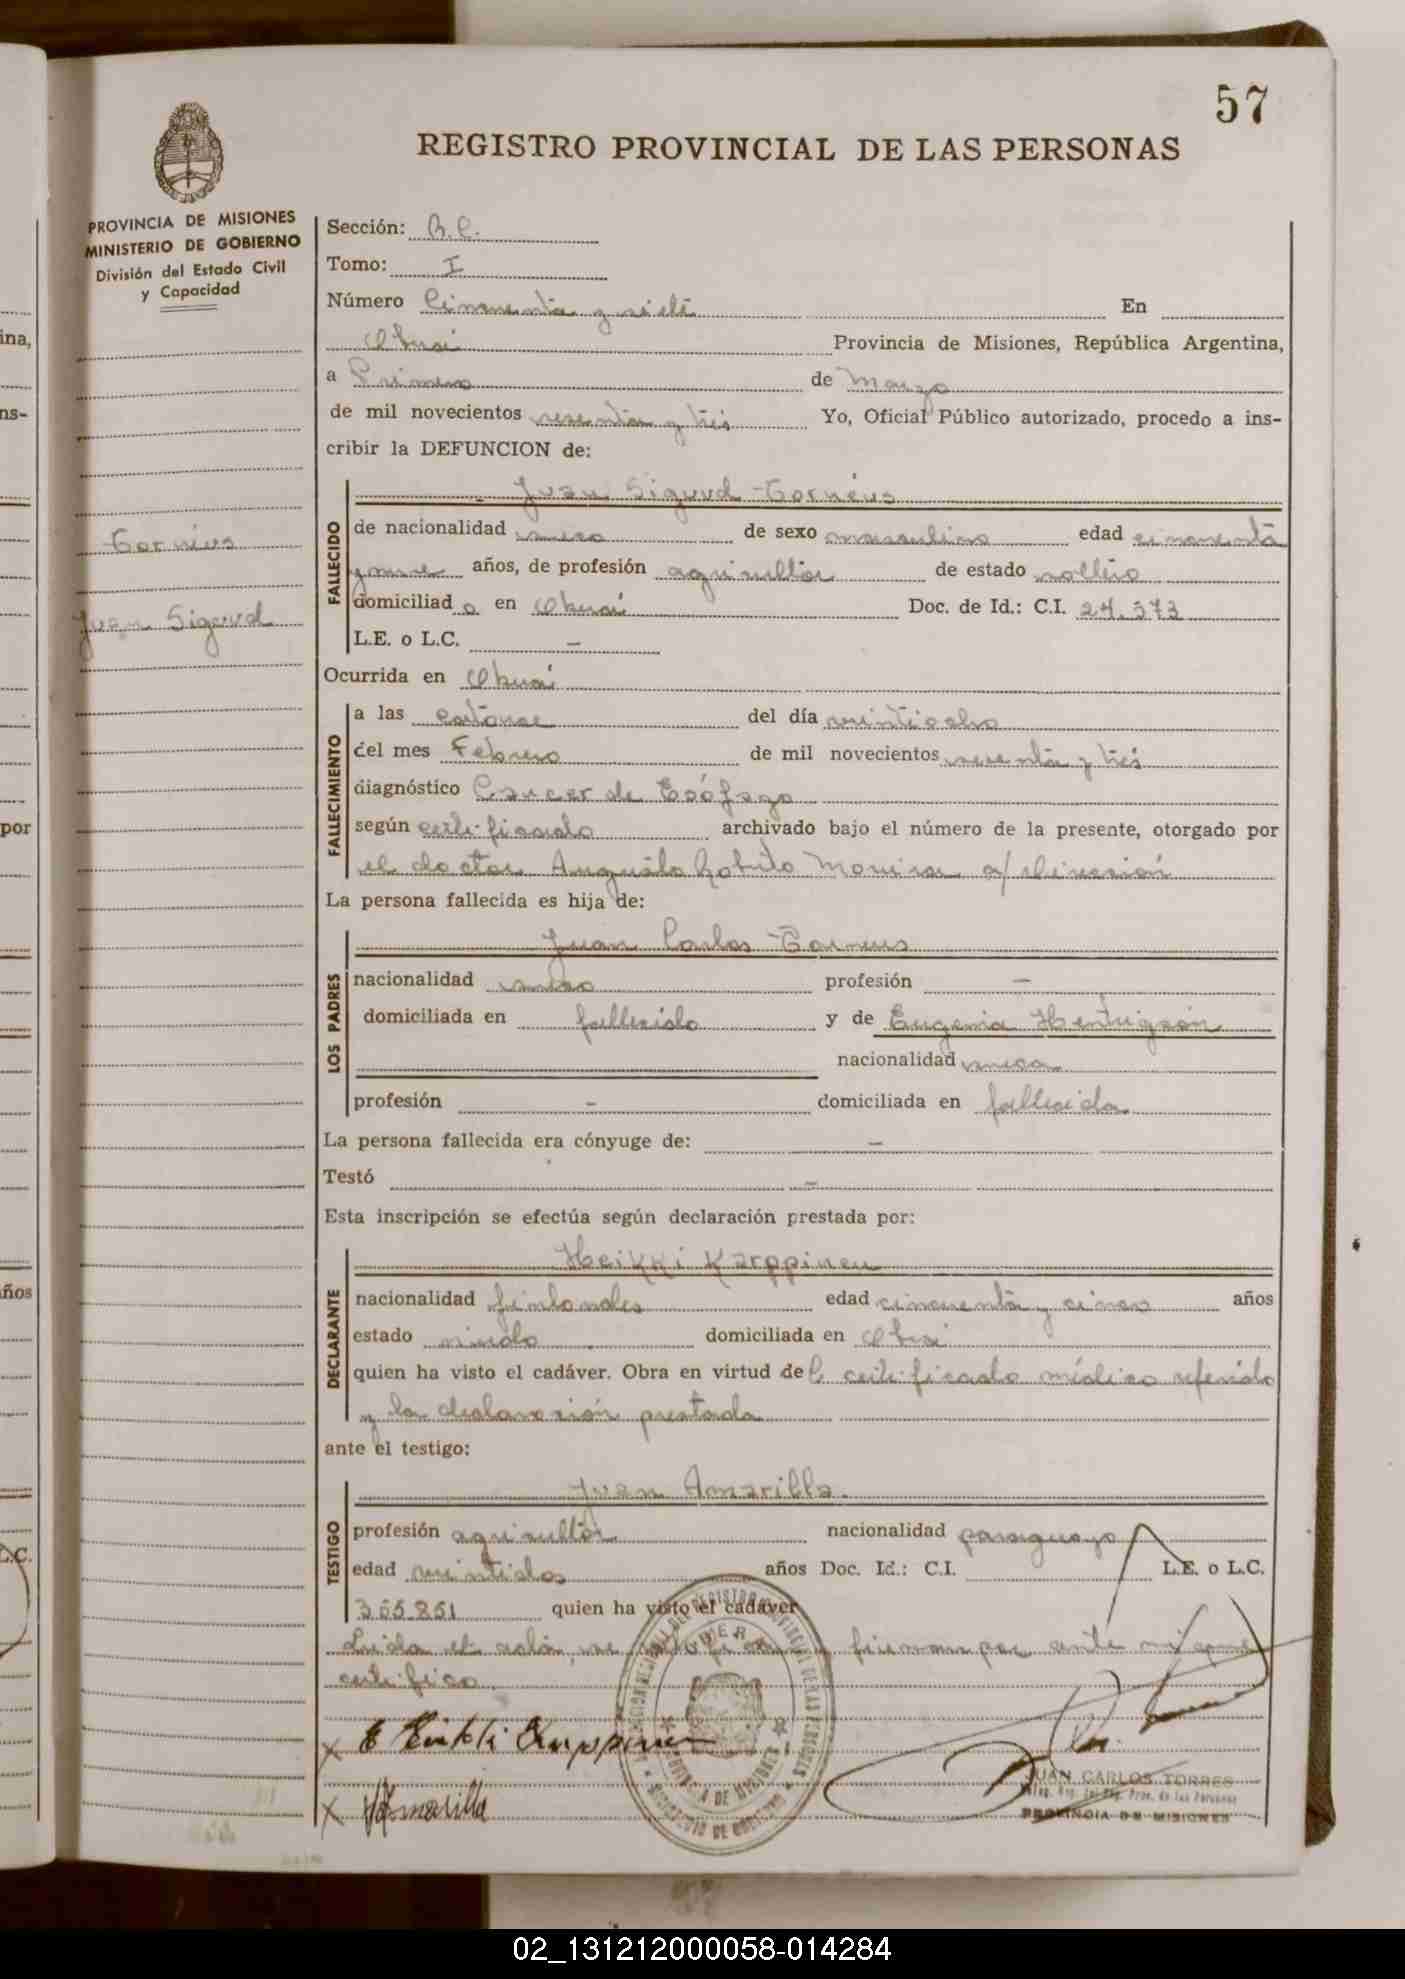 57
REGISTRO PROVINCIAL DE LAS PERSONAS
PROVINCIA DE MISIONES
MINISTERIO DE GOBIERNO
División del Estado Civil
y Capacidad
Cornéus
Juan Sigurd
Sección:
Tomo: I
Número Cincuenta y siete En
Oberá Provincia de Misiones, República Argentina,
a Primero de Marzo
de mil novecientos sesenta y tres Yo, Oficial Público autorizado, procedo a ins-
cribir la DEFUNCION de:
Juan Sigurd Cornéus
FALLECIDO
de nacionalidad sueco de sexo masculino edad cincuenta
y nueve años, de profesión agricultor de estado soltero
domiciliad o en Oberá Doc. de Id.: C.I. 24.573
L.E. o L.C. -
Ocurrida en Oberá
FALLECIMIENTO
a las catorce del día veintiocho
del mes Febrero de mil novecientos sesenta y tres
diagnóstico Cancer de Esófago
según certificado archivado bajo el número de la presente, otorgado por
el doctor Augusto Roberto
La persona fallecida es hija de:
Juan Carlos Corneus
LOS PADRES
nacionalidad sueco profesión -
domiciliada en fallecido y de Eugenia
nacionalidad sueca
profesión - domiciliada en fallecida
La persona fallecida era cónyuge de: -
Testó -
Esta inscripción se efectúa según declaración prestada por:
Heikki Karppinen
DECLARANTE
nacionalidad finlandés edad cincuenta y cinco años
estado viudo domiciliada en Oberá
quien ha visto el cadáver. Obra en virtud de l certificado médico referido
y la declaración prestada
ante el testigo:
Juan Amarilla.
TESTIGO
profesión agricultor nacionalidad paraguayo
edad veintidos años Doc. Id.: C.I. L.E. o L.C.
355.851 quien ha visto el cadáver
Leida el acta, firman por ante mi que
certifico.
x Heikki Karppinen
x Amarilla
JUAN CARLOS TORRES
PROVINCIA DE MISIONES
02_131212000058-014284